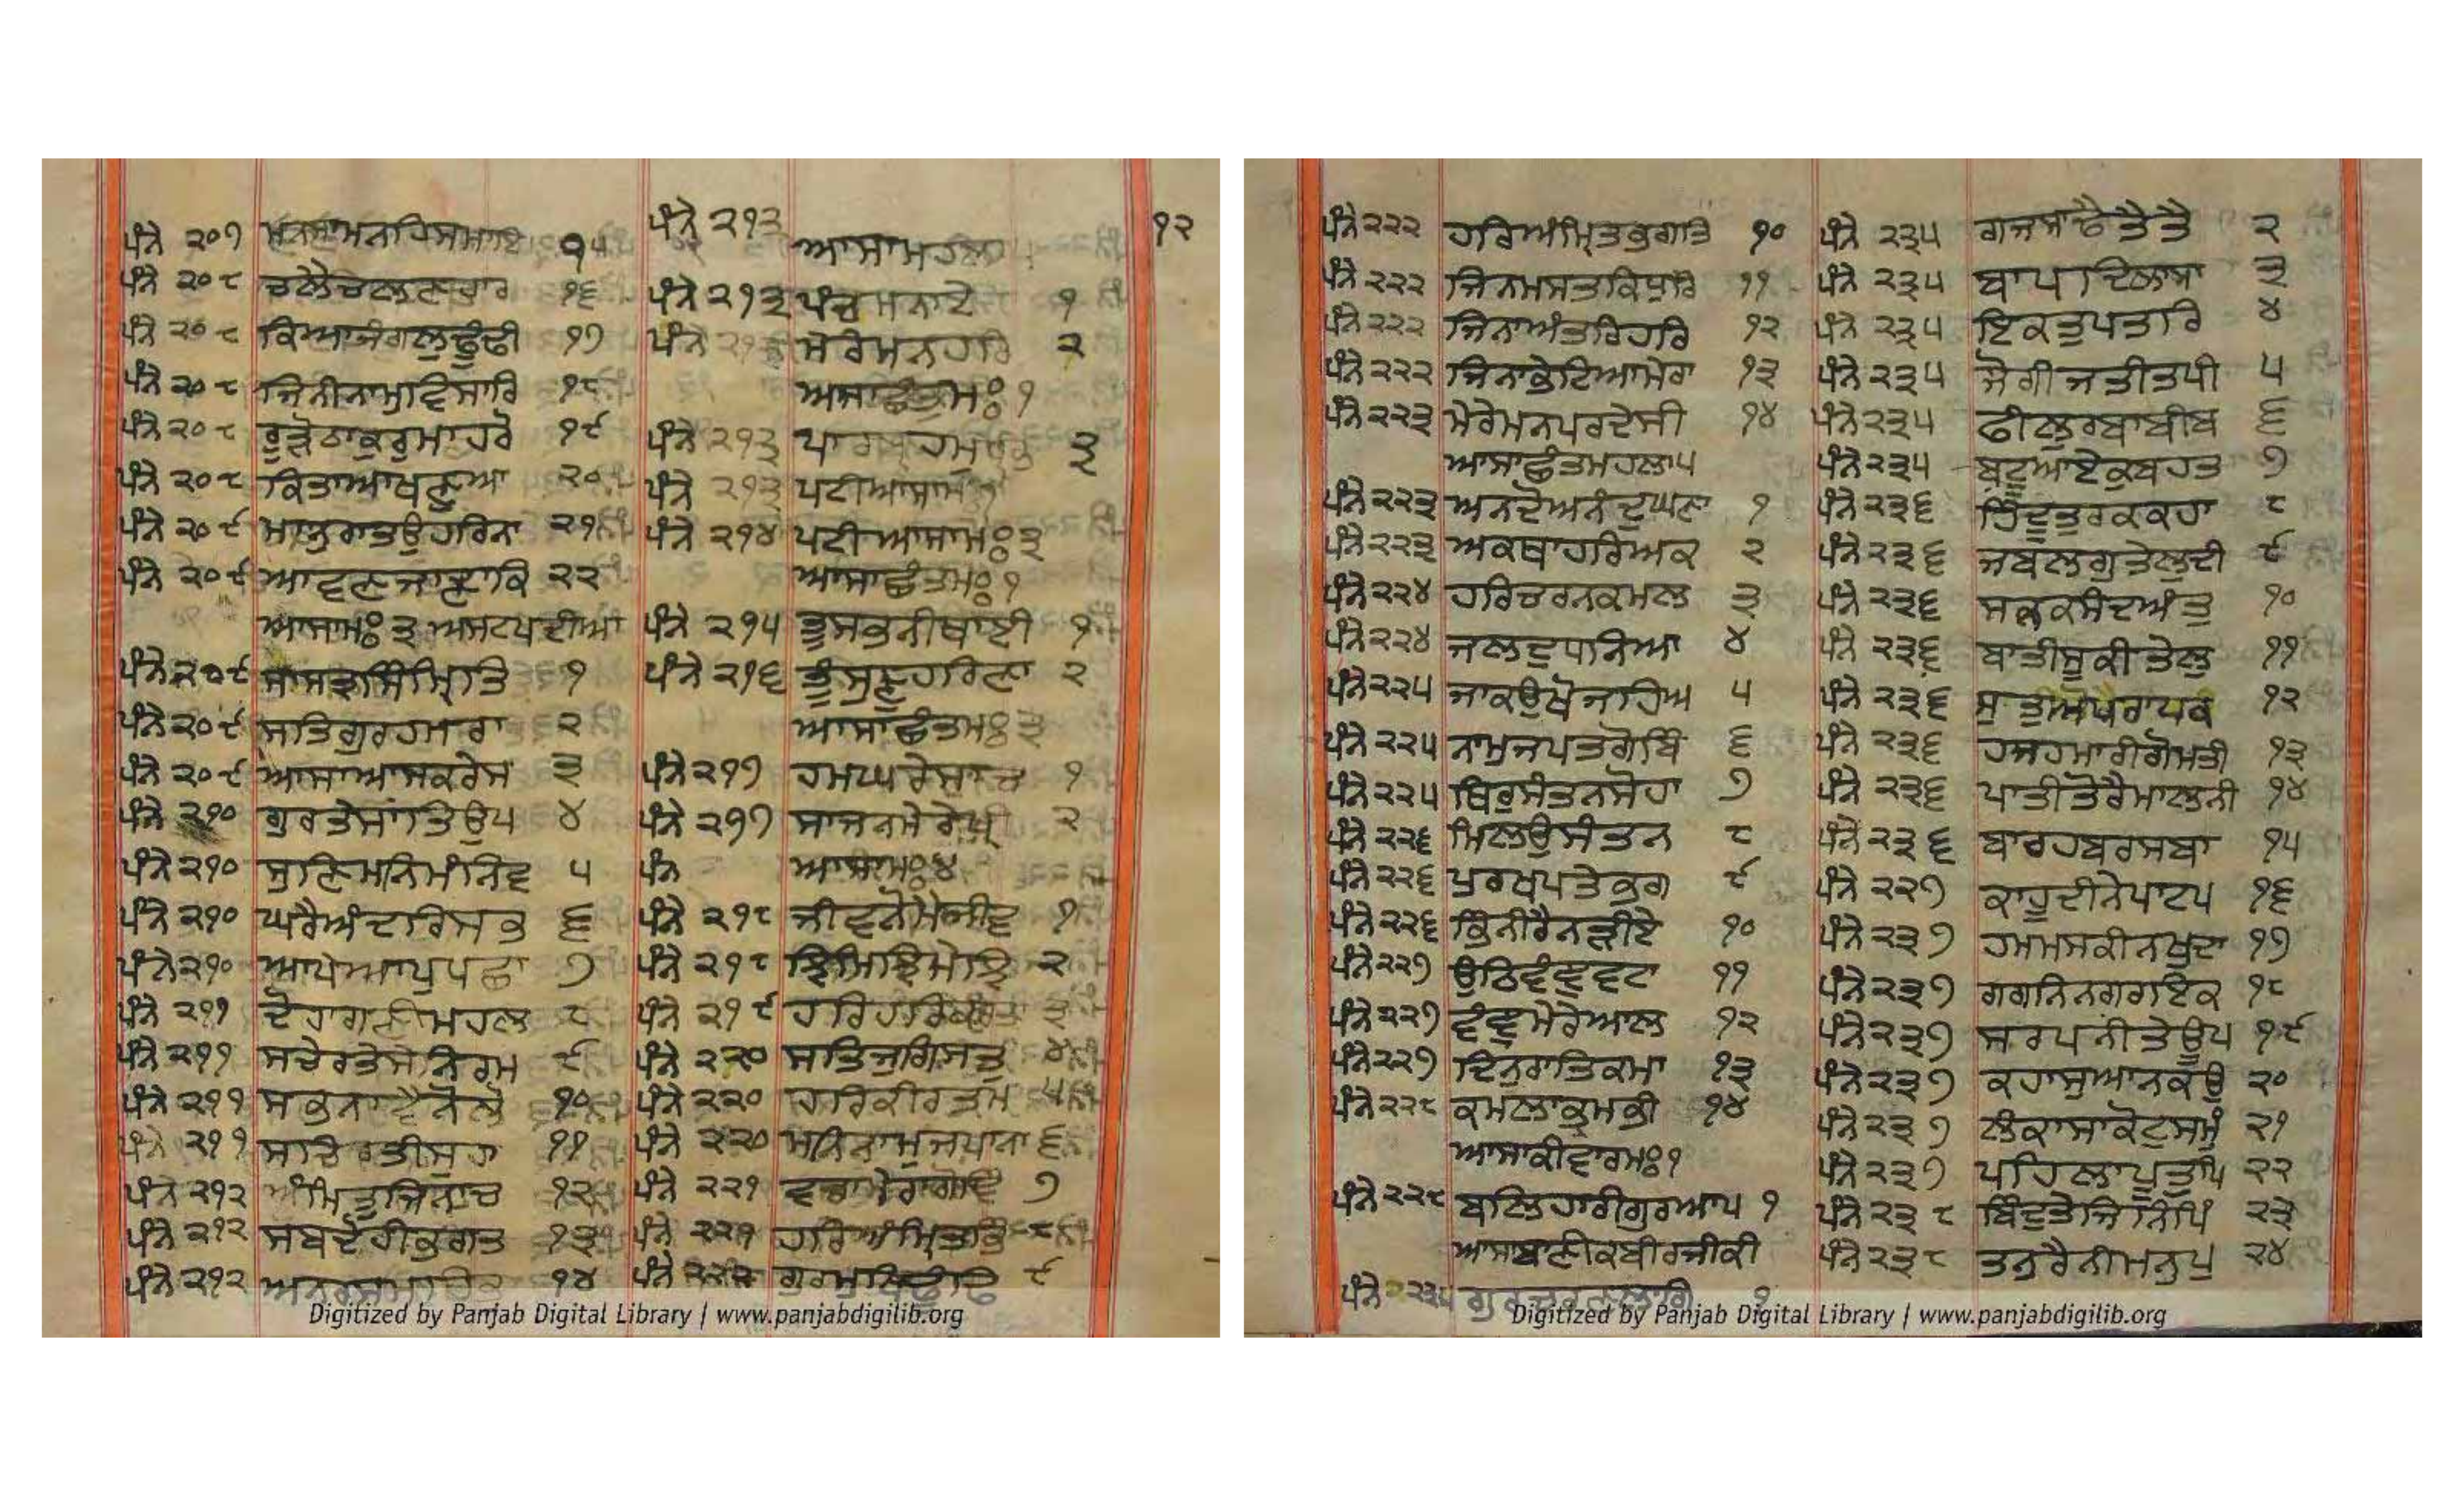 ਪੰਨੇ ੨੦੭ ਮਨਸਾਮਨਹਿਸਮਾਇ ੧੫
ਪੰਨੇ ੨੦੮ ਚਲੇਚਲਣਹਾਰ ੧੬
ਪੰਨੇ ੨੦੮ ਕਿਆਜੰਗਲੁਢੂੰਢੀ ੧੭
ਪੰਨੇ ੨੦੮ ਜਿਨੀਨਾਮੁਵਿਸਾਰਿ ੧੮
ਪੰਨੇ ੨੦੮ ਰੂੜੋਠਾਕੁਰੁਮਾਹਰੋ ੧੯
ਪੰਨੇ ੨੦੮ ਕਿਤਾਆਖਣੁਆ ੨੦
ਪੰਨੇ ੨੦੯ ਮਨੁਰਾਤਉਹਰਿਨਾ ੨੧
ਪੰਨੇ ੨੦੯ ਆਵਣਜਾਣਾਕਿ ੨੨
ਆਸਾਮਃ ੩ ਅਸਟਪਦੀਆ
ਪੰਨੇ ੨੦੯ ਸਾਸਤੁਸਿੰਮ੍ਰਿਤਿ ੧
ਪੰਨੇ ੨੦੯ ਸਤਿਗੁਰਹਮਾਰਾ ੨
ਪੰਨੇ ੨੦੯ ਆਸਾਆਸਕਰੇਸ ੩
ਪੰਨੇ ੨੧੦ ਗੁਰਤੇਸਾਂਤਿਊਪ ੪
ਪੰਨੇ ੨੧੦ ਸੁਣਿਮਨਿਮੰਨਿਵ ੫
ਪੰਨੇ ੨੧੦ ਘਰੈਅੰਦਰਿਸਭੁ ੬
ਪੰਨੇ ੨੧੦ ਆਪੇਆਪੁਪਛਾ ੭
ਪੰਨੇ ੨੧੧ ਦੋਹਾਗਣੀਮਹਲ ੮
ਪੰਨੇ ੨੧੧ ਸਚੇਰਤੇਸੇਨਿਰਮ ੯
ਪੰਨੇ ੨੧੧ ਸਭਨਾਵੈਨੋਲੋ ੧੦
ਪੰਨੇ ੨੧੧ ਸਚਿਰਤੀਸੁਹਾ ੧੧
ਪੰਨੇ ੨੧੨ ਅੰਮ੍ਰਿਤੁਜਿਨਾਚ ੧੨
ਪੰਨੇ ੨੧੨ ਸਬਦੋਹੀਭਗਤ ੧੩
ਪੰਨੇ ੨੧੨ ੧੪
ਪੰਨੇ ੨੧੩ ਆਸਾਮਹਲਾ
ਪੰਨੇ ੨੧੩ ਪੰਚਮਨਾਏ ੧
ਪੰਨੇ ਮੇਰੇਮਨਹਰਿ ੨
ਅਸਾਛੰਤਮਃ ੧
ਪੰਨੇ ੨੧੩ ੩
ਪੰਨੇ ੨੧੩ ਪਟੀਆਸਾਮਃ
ਪੰਨੇ ੨੧੪ ਪਟੀਆਸਾਮਃ੩
ਆਸਾਛੰਤਮਃ੧
ਪੰਨੇ ੨੧੫ ਤੂੰਸਭਨੀਥਾਈ ੧
ਪੰਨੇ ੨੧੬ ਤੂੰਸੁਣਹਰਿਣਾ ੨
ਆਸਾਛੰਤਮਃ੩
ਪੰਨੇ ੨੧੭ ਹਮਘਰੇਸਾਚ ੧
ਪੰਨੇ ੨੧੭ ਸਾਜਨਮੇਰੇਪ੍ਰੀ ੨
ਪੰਨ ਆਸਾਮਃ੪
ਪੰਨੇ ੨੧੮ ਜੀਵਨੋਮੈਜੀਵ ੧
ਪੰਨੇ ੨੧੮ ਝਿਮਿਝਿਮੇਝਿ ੨
ਪੰਨੇ ੨੧੯ ਹਰਿਹਰਿ ੩
ਪੰਨੇ ੨੨੦ ਸਤਿਜੁਗਿਸਤੁ ੪
ਪੰਨੇ ੨੨੦ ਹਰਿਕੀਰਤਿਮ ੫
ਪੰਨੇ ੨੨੦ ਮਨਿਨਾਮੁਜਪਾਨਾ ੬
ਪੰਨੇ ੨੨੧ ਵਡਾਮੇਰਾਗੋਵਿੰ ੭
ਪੰਨੇ ੨੨੧ ਹਰਿਅੰਮ੍ਰਿਤਭਿ ੮
ਪੰਨੇ ੨੨੨ ਗੁਰਮੁਖਿਢੂੰਢਿ ੯
੧੨
Digitized by Panjab Digital Library | www.panjabdigilib.org
ਪੰਨੇ ੨੨੨ ਹਰਿਅੰਮ੍ਰਿਤਭਗਤਿ ੧੦
ਪੰਨੇ ੨੨੨ ਜਿਨਮਸਤਕਿਧੁਰਿ ੧੧
ਪੰਨੇ ੨੨੨ ਜਿਨਾਅੰਤਰਿਹਰਿ ੧੨
ਪੰਨੇ ੨੨੨ ਜਿਨਾਭੇਟਿਆਮੇਰਾ ੧੩
ਪੰਨੇ ੨੨੩ ਮੇਰੇਮਨਪਰਦੇਸੀ ੧੪
ਆਸਾਛੰਤਮਹਲਾ੫
ਪੰਨੇ ੨੨੩ ਅਨਦੋਅਨੰਦੁਘਣਾ ੧
ਪੰਨੇ ੨੨੩ ਅਕਥਾਹਰਿਅਕ ੨
ਪੰਨੇ ੨੨੪ ਹਰਿਚਰਨਕਮਲ ੩
ਪੰਨੇ ੨੨੪ ਜਲਦੁਧਨਿਆ ੪
ਪੰਨੇ ੨੨੫ ਜਾਕਉਖੋਜਹਿਅ ੫
ਪੰਨੇ ੨੨੫ ਨਾਮੁਜਪਤਗੋਬਿੰ ੬
ਪੰਨੇ ੨੨੫ ਥਿਰੁਸੰਤਨਸੋਹਾ ੭
ਪੰਨੇ ੨੨੬ ਮਿਲਉਸੰਤਨ ੮
ਪੰਨੇ ੨੨੬ ਪੁਰਖਪਤੇਭਗ ੯
ਪੰਨੇ ੨੨੬ ਭਿੰਨੀਰੈਨੜੀਐ ੧੦
ਪੰਨੇ ੨੨੭ ਉਠਿਵੰਞੁਵਟਾ ੧੧
ਪੰਨੇ ੨੨੭ ਵੰਞੁਮੇਰੇਆਲ ੧੨
ਪੰਨੇ ੨੨੭ ਦਿਨੁਰਾਤਿਕਮਾ ੧੩
ਪੰਨੇ ੨੨੮ ਕਮਲਾਭ੍ਰਮਭੀ ੧੪
ਆਸਾਕੀਵਾਰਮਃ੧
ਪੰਨੇ ੨੨੮ ਬਲਿਹਾਰੀਗੁਰਆਪ ੧
ਆਸਾਬਾਣੀਕਬੀਰਜੀਕੀ
ਪੰਨੇ ੨੩੫ ੧
ਪੰਨੇ ੨੩੫ ਗਜਸਾਢੈਤੈਤੈ ੨
ਪੰਨੇ ੨੩੫ ਬਾਪਦਿਲਾਸਾ ੩
ਪੰਨੇ ੨੩੫ ਇਕਤੁਪਤਰਿ ੪
ਪੰਨੇ ੨੩੫ ਜੋਗੀਜਤੀਤਪੀ ੫
ਪੰਨੇ ੨੩੫ ਫੀਲੁਰਬਾਬੀਬ ੬
ਪੰਨੇ ੨੩੫ ਬਟੂਆਏਕੁਬਹਤ ੭
ਪੰਨੇ ੨੩੬ ਹਿੰਦੂਤੁਰਕਕਹਾ ੮
ਪੰਨੇ ੨੩੬ ਜਬਲਗੁਤੇਲੁਦੀ ੯
ਪੰਨੇ ੨੩੬ ਸਨਕਸਨੰਦਅੰਤੁ ੧੦
ਪੰਨੇ ੨੩੬ ਬਾਤੀਸੂਕੀਤੇਲੁ ੧੧
ਪੰਨੇ ੨੩੬ ਸੁਤੁਅਪਰਾਧਕ ੧੨
ਪੰਨੇ ੨੩੬ ਹਜਹਮਾਰੀਗੋਮਤੀ ੧੩
ਪੰਨੇ ੨੩੬ ਪਾਤੀਤੋਰੈਮਾਲਨੀ ੧੪
ਪੰਨੇ ੨੩੬ ਬਾਰਹਬਰਸਬਾ ੧੫
ਪੰਨੇ ੨੨੭ ਕਾਹੂਦੀਨੇਪਾਟਪ ੧੬
ਪੰਨੇ ੨੩੭ ਹਮਮਸਕੀਨਖੁਦਾ ੧੭
ਪੰਨੇ ੨੩੭ ਗਗਨਿਨਗਰਇਕ ੧੮
ਪੰਨੇ ੨੩੭ ਸਰਪਨੀਤੇਊਪ ੧੯
ਪੰਨੇ ੨੩੭ ਕਹਾਸੁਆਨਕਉ ੨੦
ਪੰਨੇ ੨੩੭ ਲੰਕਾਸਾਕੋਟੁਸਮੁੰ ੨੧
ਪੰਨੇ ੨੩੭ ਪਹਿਲਾਪੂਤੁਪਿ ੨੨
ਪੰਨੇ ੨੩੮ ਬਿੰਦੁਤੇਜਿਨਿਪਿੰ ੨੩
ਪੰਨੇ ੨੩੮ ਤਨੁਰੈਨੀਮਨੁਪੁ ੨੪
Digitized by Panjab Digital Library | www.panjabdigilib.org